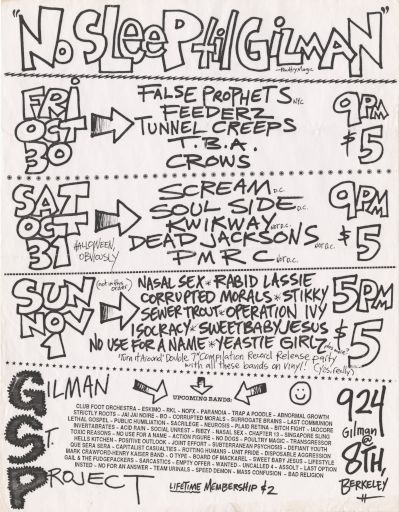 "No SLeeP til GilMAN"
-Pantty Magic
FRi OCT 30
FALSE PROPHETS NYC
FEEDERZ
TUNNEL CREEPS
T.B.A.
CROWS
9PM
$5
SAT OCT 31
HALLOWEEN, OBVIOUSLY
SCREAM D.C.
SOUL SIDE D.C.
KWIKWAY NOT D.C.
DEAD JACKSONS NOT D.C.
PMRC NOT D.C.
9PM
$5
SUN NOV 1
(not in this order)
NASAL SEX * RABID LASSIE
CORRUPTED MORALS * STIKKY
SEWER TROUT * OPERATION IVY
ISOCRACY * SWEET BABY JESUS
NO USE FOR A NAME * YEASTIE GIRLZ
"Turn it Around" Double 7" Compilation Record Release party
with all these bands on vinyl! (yes, really)
5PM
$5
GILMAN
ST
PROJECT
UPCOMING BANDS:
CLUB FOOT ORCHESTRA - ESKIMO - RKL - NOFX - PARANOIA - TRAP A POODLE - ABNORMAL GROWTH
STRICTLY ROOTS - JAI JAI NOIRE - BO - CORRUPTED MORALS - SURROGATE BRAINS - LAST COMMUNION
LETHAL GOSPEL - PUBLIC HUMILIATION - SACRILEGE - NEUROSIS - PLAID RETINA - BITCH FIGHT - IADCORE
INVERTABRATES - ACID RAIN - SOCIAL UNREST - RIBZY - NASAL SEX - CHAPTER 13 - SINGAPORE SLING
TOXIC REASONS - NO USE FOR A NAME - ACTION FIGURE - NO DOGS - POULTRY MAGIC - TRANSGRESSION
HELLS KITCHEN - POSITIVE OUTLOOK - JOINT EFFORT - SUBTERRANEAN PSYCHOSIS - DEFIANT YOUTH
QUE SERA SERA - CAPITALIST CASUALTIES - ROTTING HUMANS - UNIT PRIDE - DISPOSABLE AGGRESSION
MARK CRAWFORD-HENRY KAISER BAND - O TYPE - BOARD OF MACKAREL - SWEET BABY JESUS - LIFESTYLE
GAIL & THE FUDGEPACKERS - SARCASTICS - EMPTY OFFER - WANTED - UNCALLED 4 - ASSOLT - LAST OPTION
INSTED - NO FOR AN ANSWER - TEAM URINALS - SPEED DEMON - MASS CONFUSION - BAD RELIGION
LIFETIME MEMBERSHIP $2
924
Gilman
@
8TH,
BERKELEY